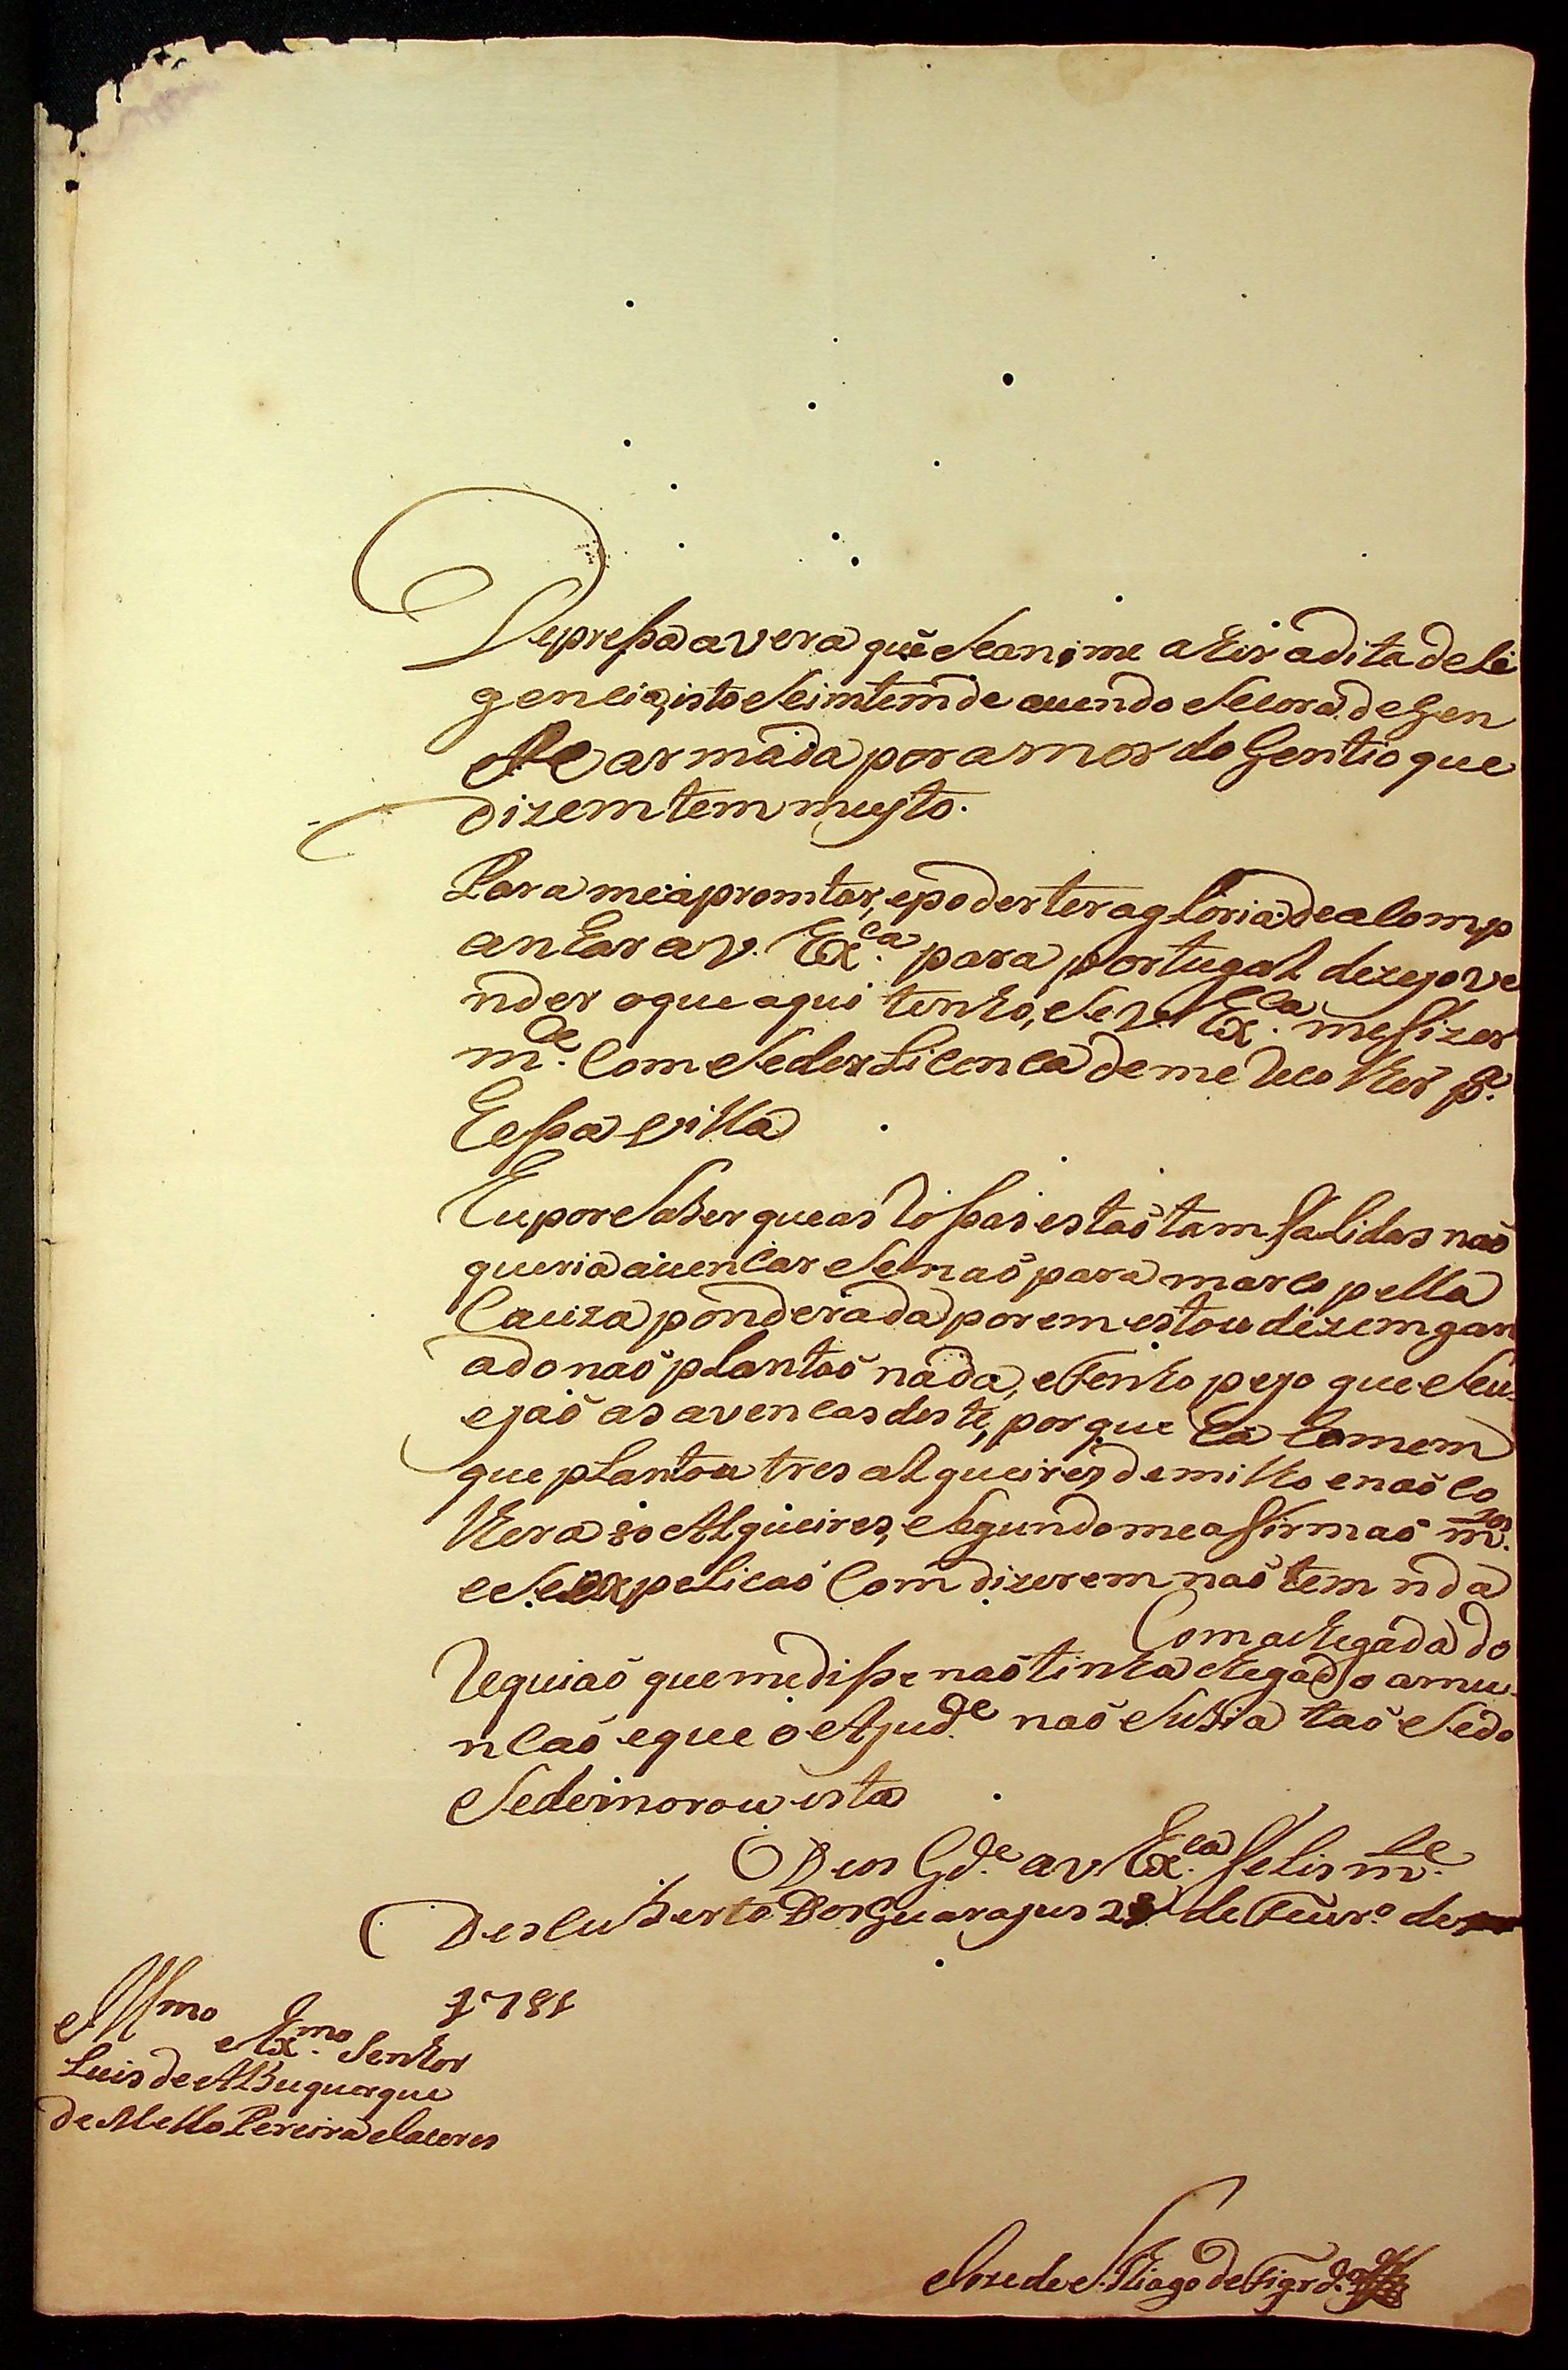 Depressa avera quẽ Se anime a hir adita deli
gencia, isto Se imtemde auendo Secora de Gen
te armada por amor do Gentio que
dizem tem muyto.
Para me apromtar, epoder ter agloria de acomp
anhar a V. Ex.ca para portugal dezejo ve
nder oque aqui tenho, Se V. Ex.ca me fizer
m.ce Com Seder Licenca de me Recolher p.a
Essa villa
Eu por Saber que as Rossas estaõ tam falidas naõ
queria auencar Se naõ para marco pella
Cauza ponderada porem estou dezemgan
ado naõ plantaõ nada, e tenho pejo que Seu
ejaõ as avencas deste, por que ha homem
que plantou tres alqueires de milho enaõ co
lhera 80 Alqueires, Segundo me afirmaõ m.tos
e Se expelicaõ Com dizerem naõ tem nda
Com a chegada do
Requiaõ que me disse naõ tinha chegado amu
nicaõ e que o Ajud.e naõ Subia taõ Sedo
Sedemorou esta
Deos G.de a V Ex.ca felis m.te
Descuberto Dos Guarajus 28 de Feur.o de
1781
Illmo e Ex.mo Senhor
Luis de Albuquerque
de Mello Pereira Caceres
Joze de S.Tiago de Figr.do